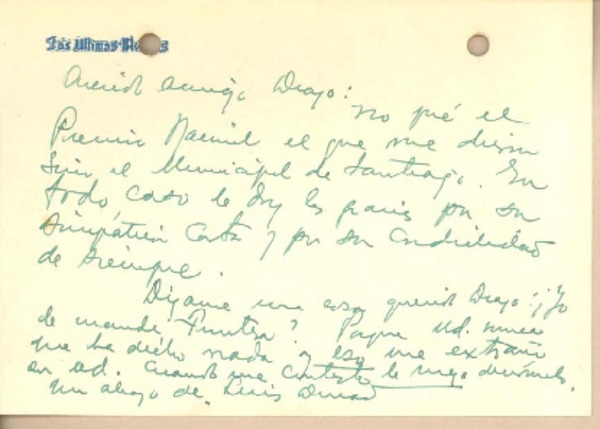 Las Ultimas Noticias
Querido amigo Drago:
no fué el
Premio Nacional el que me dieron
sino el Municipal de Santiago. En
todo caso le doy las gracias por su
simpática carta y por su cordialidad
de siempre.
Dígame una cosa querido Drago: ¿Yo
le mandé Frontera? Porque Ud. nunca
me ha dicho nada y eso me extraña
en ud. Cuando me conteste le ruego decírmelo.
Un abrazo de. Luis Durand